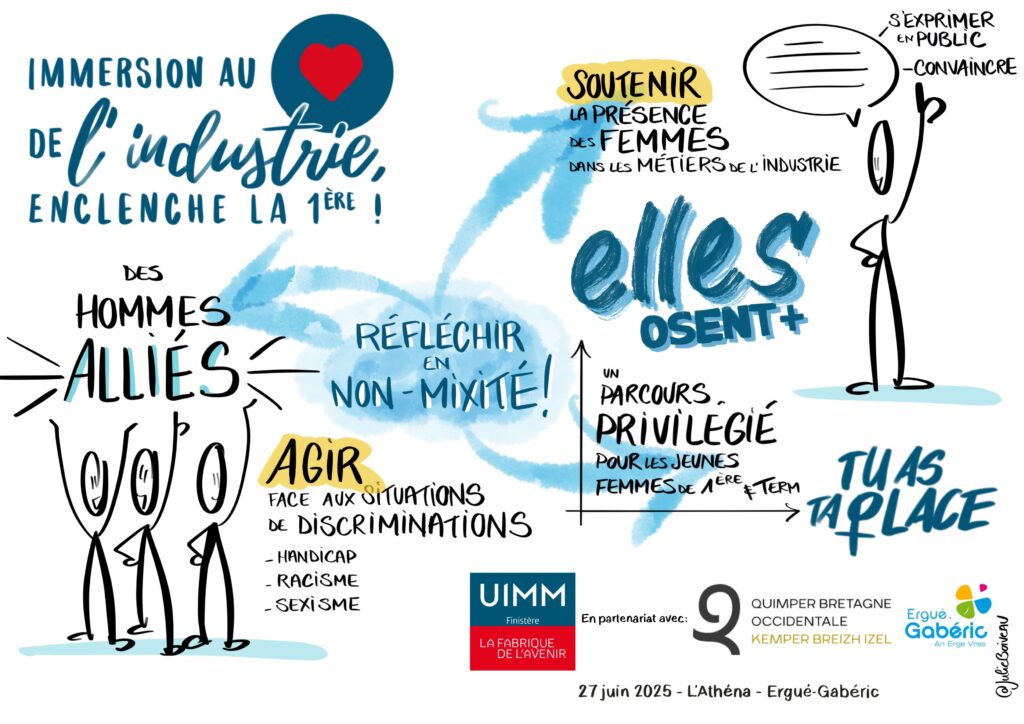 IMMERSION AU
DE l'industrie,
ENCLENCHE LA 1ÈRE !
SOUTENIR
LA PRÉSENCE
DES FEMMES
DANS LES MÉTIERS DE L'INDUSTRIE
S'EXPRIMER
EN PUBLIC
- CONVAINCRE
elles
OSENT+
DES
HOMMES
ALLIÉS
RÉFLÉCHIR
EN
NON-MIXITÉ!
UN
PARCOURS
PRIVILÉGIÉ
POUR LES JEUNES
FEMMES DE 1ÈRE & TERM
TU AS
TA PLACE
AGIR
FACE AUX SITUATIONS
DE DISCRIMINATIONS
- HANDICAP
- RACISME
- SEXISME
UIMM
Finistère
LA FABRIQUE
DE L'AVENIR
En partenariat avec:
QUIMPER BRETAGNE
OCCIDENTALE
KEMPER BREIZH IZEL
Ergué.
Gabéric
An Erge Vras
@JulieBoiveau
27 juin 2025 - L'Athéna - Ergué-Gabéric